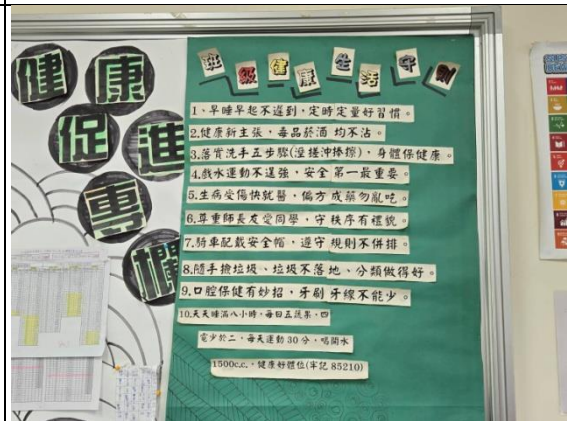 健康
促進
專
欄
班級健康生活守則
1、早睡早起不遲到，定時定量好習慣。
2.健康新主張，毒品菸酒 均不沾。
3.落實洗手五步驟(溼搓沖捧擦)，身體保健康。
4.戲水運動不逞強，安全 第一最重要。
5.生病受傷快就醫，偏方 成藥勿亂吃。
6.尊重師長友愛同學，守 秩序有禮貌。
7.騎車配戴安全帽，遵守 規則不併排。
8.隨手撿垃圾、垃圾不落地、分類做得好。
9.口腔保健有妙招，牙刷 牙線不能少。
10.天天睡滿八小時，每日五蔬果，四
電少於二，每天運動 30 分，喝開水
1500c.c.，健康好體位(牢記 85210)